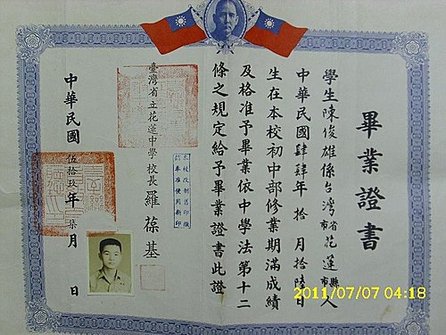 畢業證書
學生陳俊雄係台灣省花蓮縣人
中華民國肆肆年拾月拾陸日
生在本校初中部修業期滿成績
及格准予畢業依中學法第十二
條之規定給予畢業證書此證
本校改制舊印繳
臺灣省立花蓮中學校長羅葆基
中華民國伍拾玖年柒月 日
2011/07/07 04:18